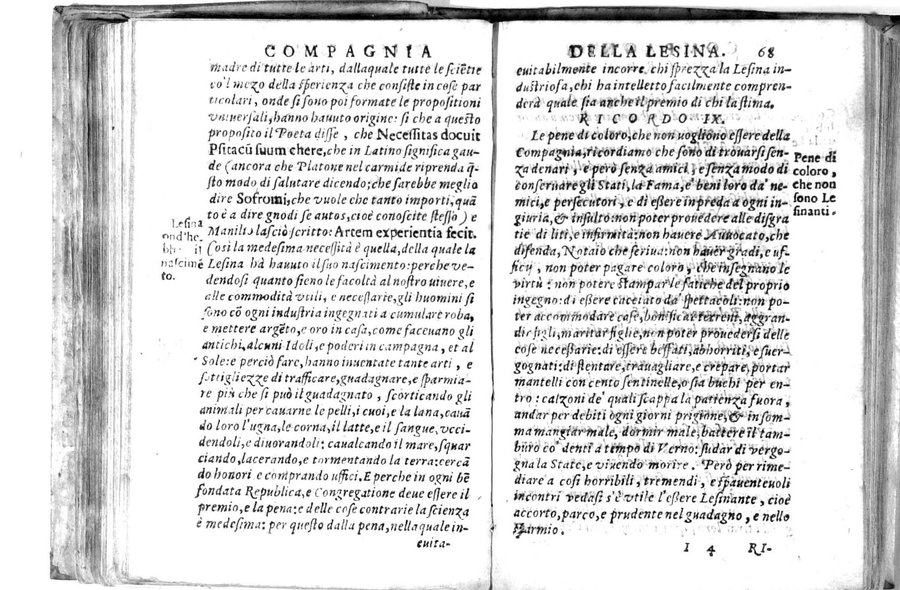 COMPAGNIA
madre di tutte le arti, dallaquale tutte le sciẽtie
vo'l mezo della sperienza che consiste in cose par
ticolari, onde si sono poi formate le propositioni
vniuersali, hanno hauuto origine: si che a questo
proposito il Poeta disse, che Necessitas docuit
Psitacũ suum chere, che in Latino significa gau-
de (ancora che Platone nel carmide riprenda q̃
sto modo di salutare dicendo; che sarebbe meglio
dire Sofromi, che vuole che tanto importi, quã
to è a dire gnodi se autos, cioè conoscite stesso) e
Manilio lasciò scritto: Artem experientia fecit.
Cosi la medesima necessità è quella, della quale la
Lesina hà hauuto il suo nascimento: perche ve-
dendosi quanto sieno le facoltà al nostro viuere, e
alle commodità vtili, e necessarie, gli huomini si
sono cõ ogni industria ingegnati a cumulare roba,
e mettere argẽto, e oro in casa, come faceuano gli
antichi, alcuni Idoli, e poderi in campagna, et al
Sole: e perciò fare, hanno inuentate tante arti, e
sottigliezze di trafficare, guadagnare, e sparmia-
re più che si può il guadagnato, scorticando gli
animali per cauarne le pelli, i cuoi, e la lana, cauã
do loro l'ugna, le corna, il latte, e il sangue, vcci-
dendoli, e diuorandoli: caualcando il mare, squar
ciando, lacerando, e tormentando la terra: cercã
do honori e comprando vffici. E perche in ogni bẽ
fondata Republica, e Congregatione deue essere il
premio, e la pena: e delle cose contrarie la scienza
è medesima: per questo dalla pena, nella quale in-
euita-
Lesina
ond'he
il
nascimẽ
to.
DELLA LESINA. 68
euitabilmente incorre, chi sprezza la Lesina in-
dustriosa, chi ha intelletto facilmente compren-
derà quale sia anche il premio di chi la stima.
RICORDO IX.
Le pene di coloro, che non vogliono essere della
Compagnia, ricordiamo che sono di trouarsi sen-
za denari, e però senza amici, e senza modo di
conseruare gli Stati, la Fama, e' beni loro da' ne-
mici, e persecutori, e di essere in preda a ogni in-
giuria, & insulto: non poter prouedere alle disgra
tie di liti, e infirmità: non hauere Auuocato, che
difenda, Notaio che seriua: non hauer gradi, e uf-
ficij, non poter pagare coloro, che insegnano le
virtù: non potere stampar le fatiche del proprio
ingegno: di essere cacciato da' spettacoli: non po-
ter accommodare case, bonificar terreni, aggran-
dir figli, maritar figlie, non poter prouedersi delle
cose necessarie: di essere beffati, abhorriti, e suer-
gognati: di stentare, trauagliare, e crepare, portar
mantelli con cento sentinelle, o sia buchi per en-
tro: calzoni de' quali scappa la patienza fuora,
andar per debiti ogni giorni prigione, & in som-
ma mangiar male, dormir male, battere il tam-
buro co' denti a tempo di Verno: sudar di vergo-
gna la State, e viuendo morire. Però per rime-
diare a cosi horribili, tremendi, e spauenteuoli
incontri vedasi s'è vtile l'essere Lesinante, cioè
accorto, parco, e prudente nel guadagno, e nello
sparmio.
Pene di
coloro,
che non
sono Le
sinanti.
I 4 RI-